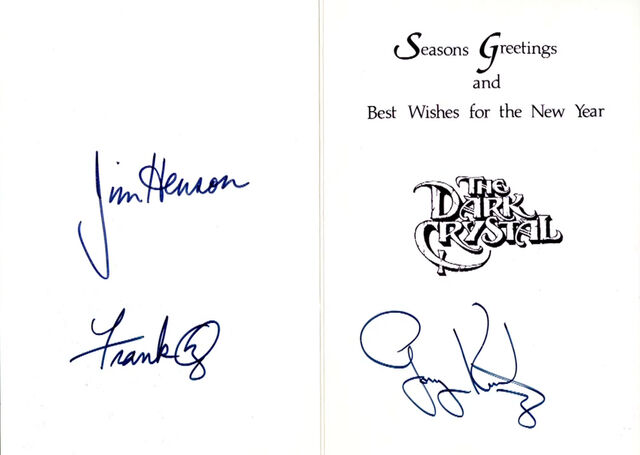 Jim Henson
Frank Oz
Seasons Greetings
and
Best Wishes for the New Year
THE
DARK
CRYSTAL
Gary Kurtz